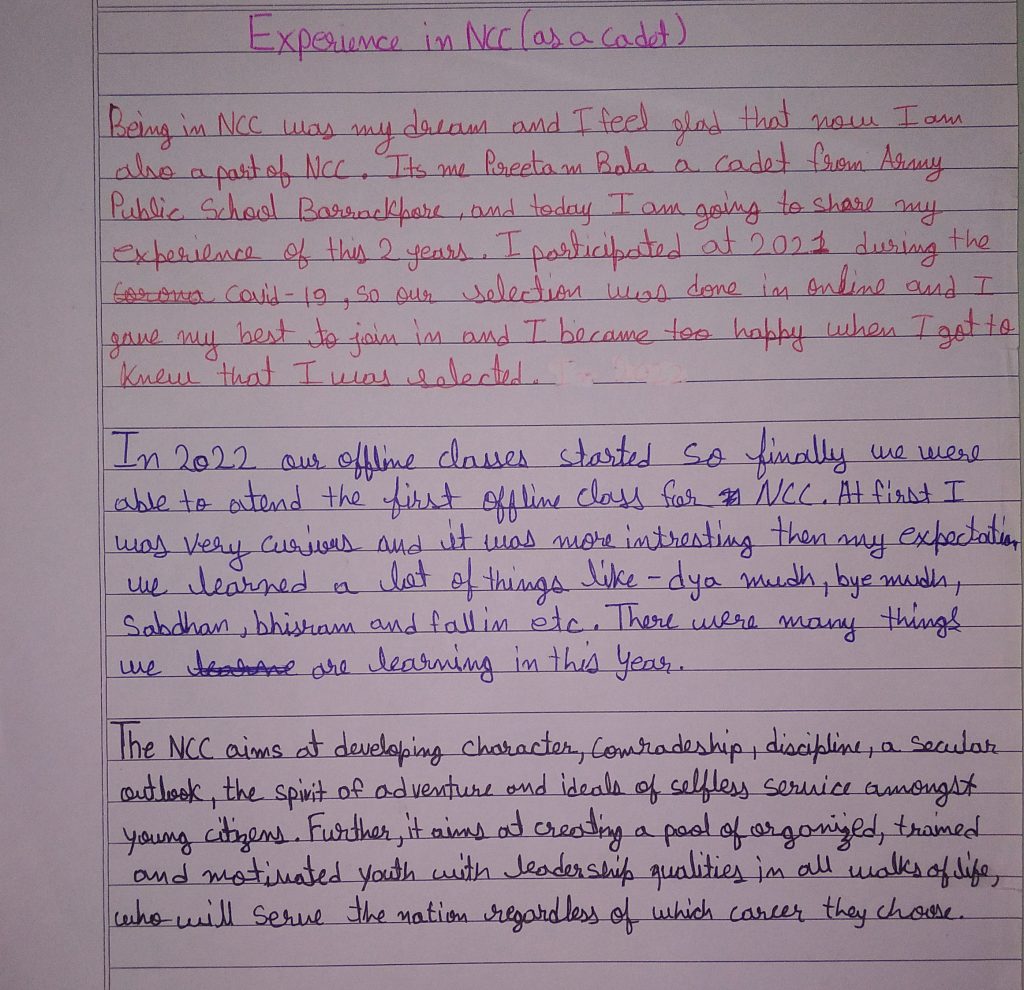 Experience in NCC (as a cadet)
Being in NCC was my dream and I feel glad that now I am
also a part of NCC. Its me Preetam Bala a cadet from Army
Public School Barrackpore, and today I am going to share my
experience of this 2 years. I participated at 2021 during the
Corona Covid-19, so our selection was done in online and I
gave my best to join in and I became too happy when I got to
knew that I was selected.
In 2022 our offline classes started so finally we were
able to atend the first offline class for NCC. At first I
was very curious and it was more intresting then my expectation
we learned a lot of things like - dya mudh, bye mudh,
Sabdhan, bhisram and fall in etc. There were many things
we learne are learning in this year.
The NCC aims at developing character, comradeship, discipline, a secular
outlook, the spirit of adventure and ideals of selfless service amongst
young citizens. Further, it aims at creating a pool of organized, trained
and motivated youth with leadership qualities in all walks of life,
who will serve the nation regardless of which career they choose.